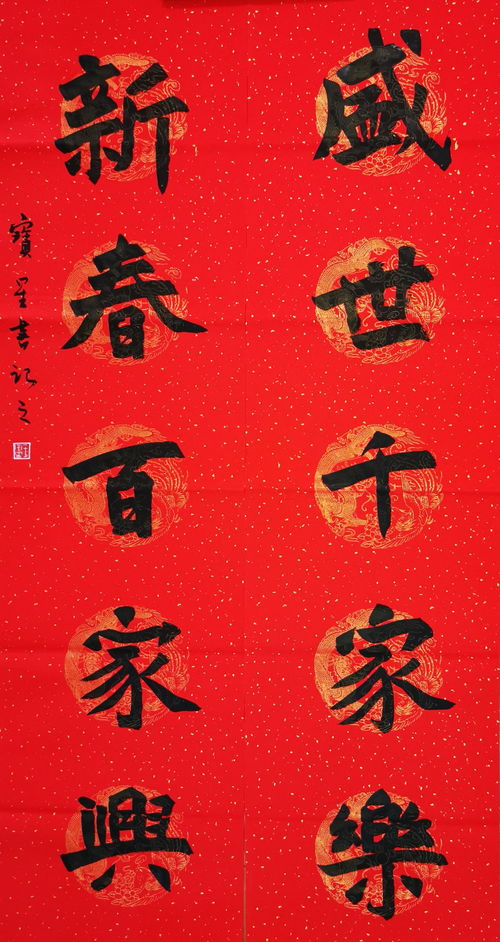 盛世千家樂
新春百家興
寶星書記之